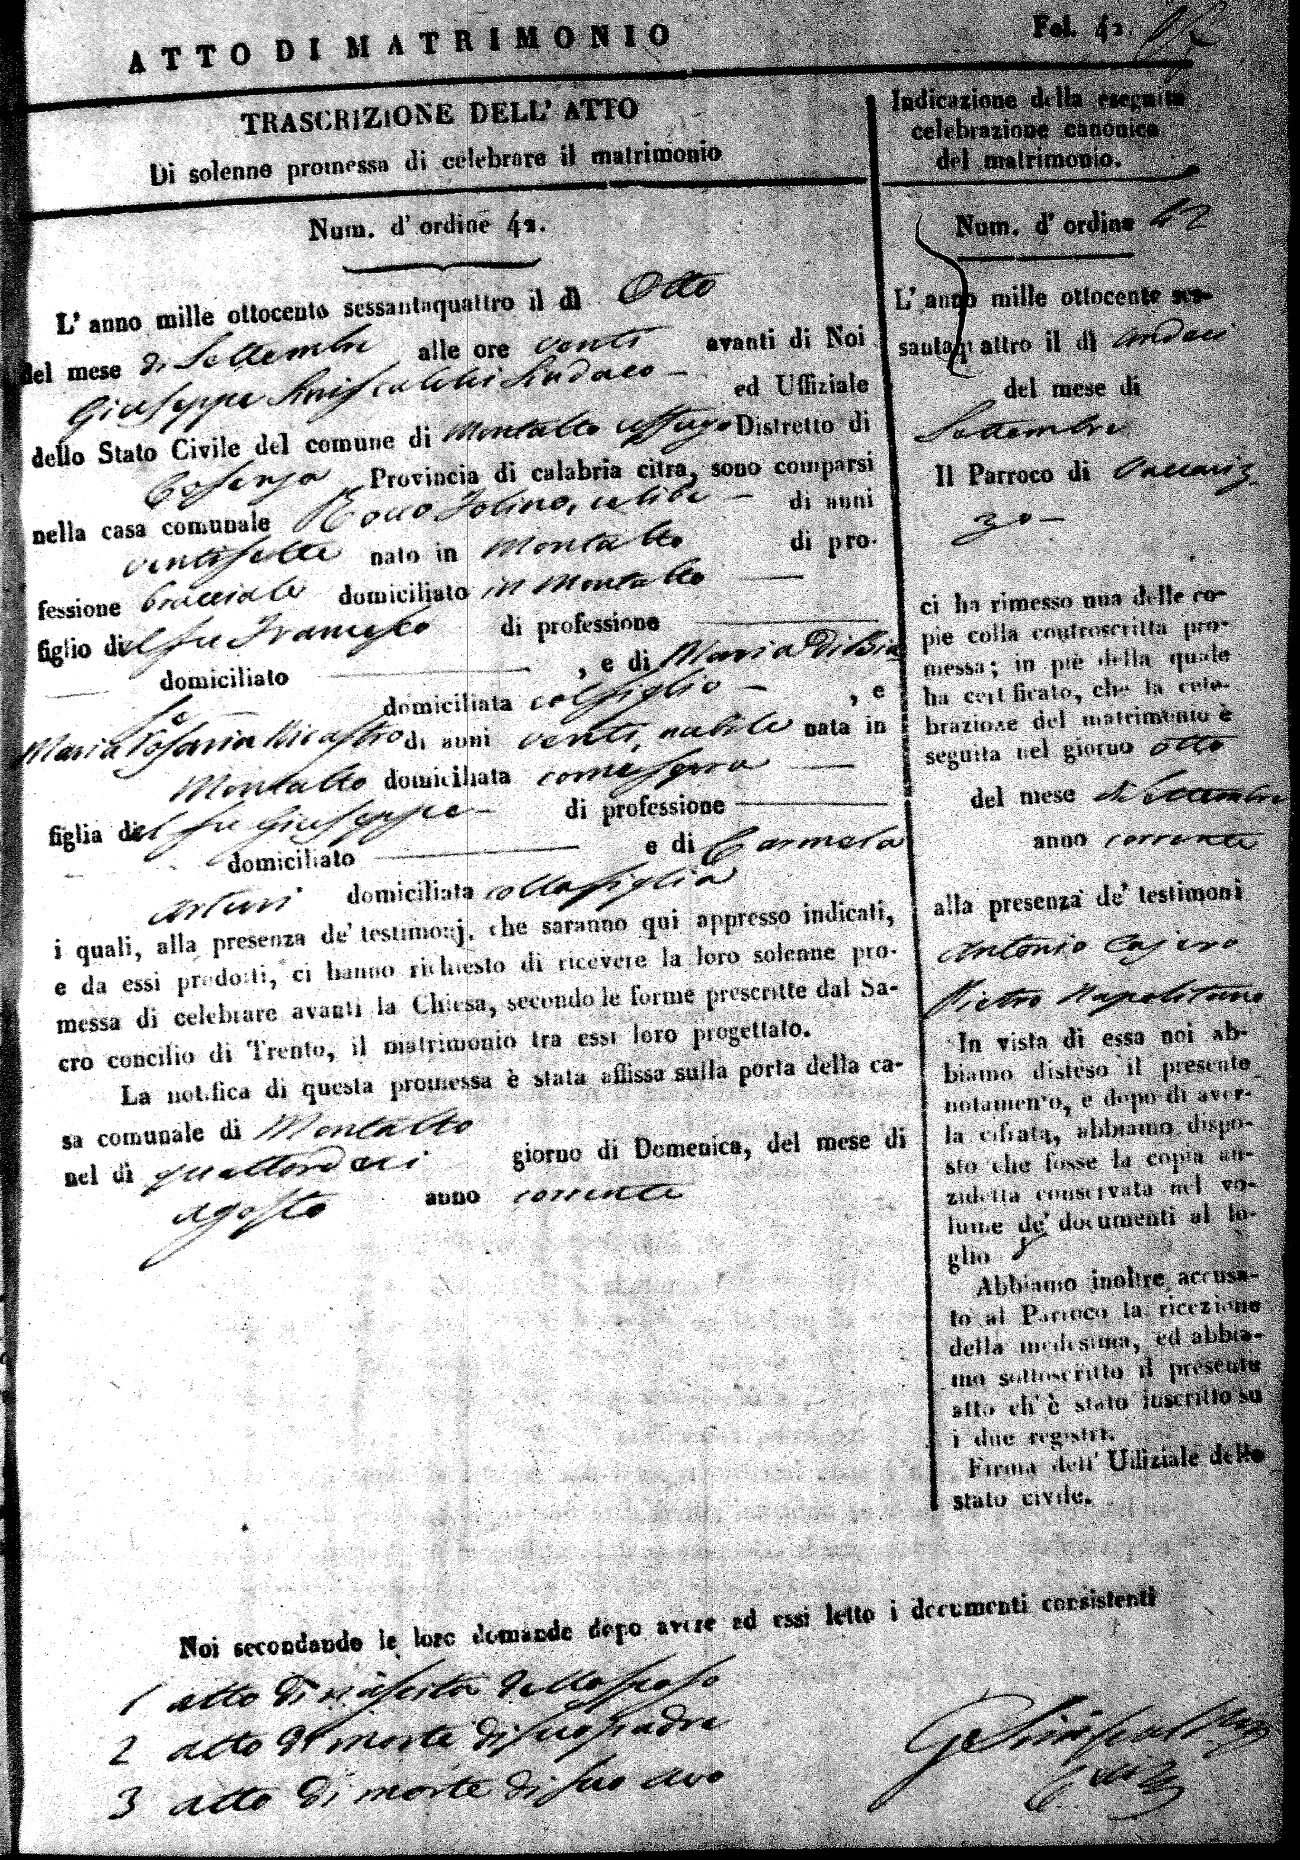 ATTO DI MATRIMONIO
Fol. 42.
TRASCRIZIONE DELL' ATTO
Di solenne promessa di celebrare il matrimonio
Num. d' ordine 42.
L' anno mille ottocento sessantaquattro il dì Otto
del mese di Settembre alle ore venti avanti di Noi
Giuseppe Siniscalchi Sindaco — ed Uffiziale
dello Stato Civile del comune di Montalto Uffugo Distretto di
Cosenza Provincia di calabria citra, sono comparsi
nella casa comunale Rocco Iolino, celibe — di anni
ventisette nato in Montalto di pro-
fessione bracciale domiciliato in Montalto —
figlio del fu Francesco di professione —
— domiciliato — , e di Maria Di Bia
se — domiciliata col figlio — , e
Maria Rosaria Nicastro di anni venti, nubile nata in
Montalto domiciliata come sopra —
figlia del fu Giuseppe — di professione —
domiciliato — e di Carmela
Arturi domiciliata colla figlia
i quali, alla presenza de' testimonj. che saranno qui appresso indicati,
e da essi prodotti, ci hanno richiesto di ricevere la loro solenne pro-
messa di celebrare avanti la Chiesa, secondo le forme prescritte dal Sa-
cro concilio di Trento, il matrimonio tra essi loro progettato.
La notifica di questa promessa è stata affissa sulla porta della ca-
sa comunale di Montalto
nel dì quattordici giorno di Domenica, del mese di
agosto anno corrente
Indicazione della eseguita
celebrazione canonica
del matrimonio.
Num. d' ordine 42
L' anno mille ottocento ses-
santaquattro il dì undeci
del mese di
Settembre
Il Parroco di Vaccariz
zo —
ci ha rimesso una delle co-
pie colla controscritta pro-
messa; in piè della quale
ha certificato, che la cele-
brazione del matrimonio è
seguita nel giorno otto
del mese di Settembre
anno corrente
alla presenza de' testimoni
Antonio Cajero
Pietro Napolitano
In vista di essa noi ab-
biamo disteso il presente
notamento, e dopo di aver-
la cifrata, abbiamo dispo-
sto che fosse la copia an-
zidetta conservata nel vo-
lume de' documenti al fo-
glio 8
Abbiamo inoltre accusa-
to al Parroco la ricezione
della medesima, ed abbia-
mo sottoscritto il presente
atto ch' è stato inscritto su
i due registri.
Firma dell' Uffiziale dello
stato civile.
Noi secondando le loro domande dopo avere ad essi letto i documenti consistenti
1 atto di nascita dello sposo
2 atto di morte di suo padre
3 atto di morte di suo avo